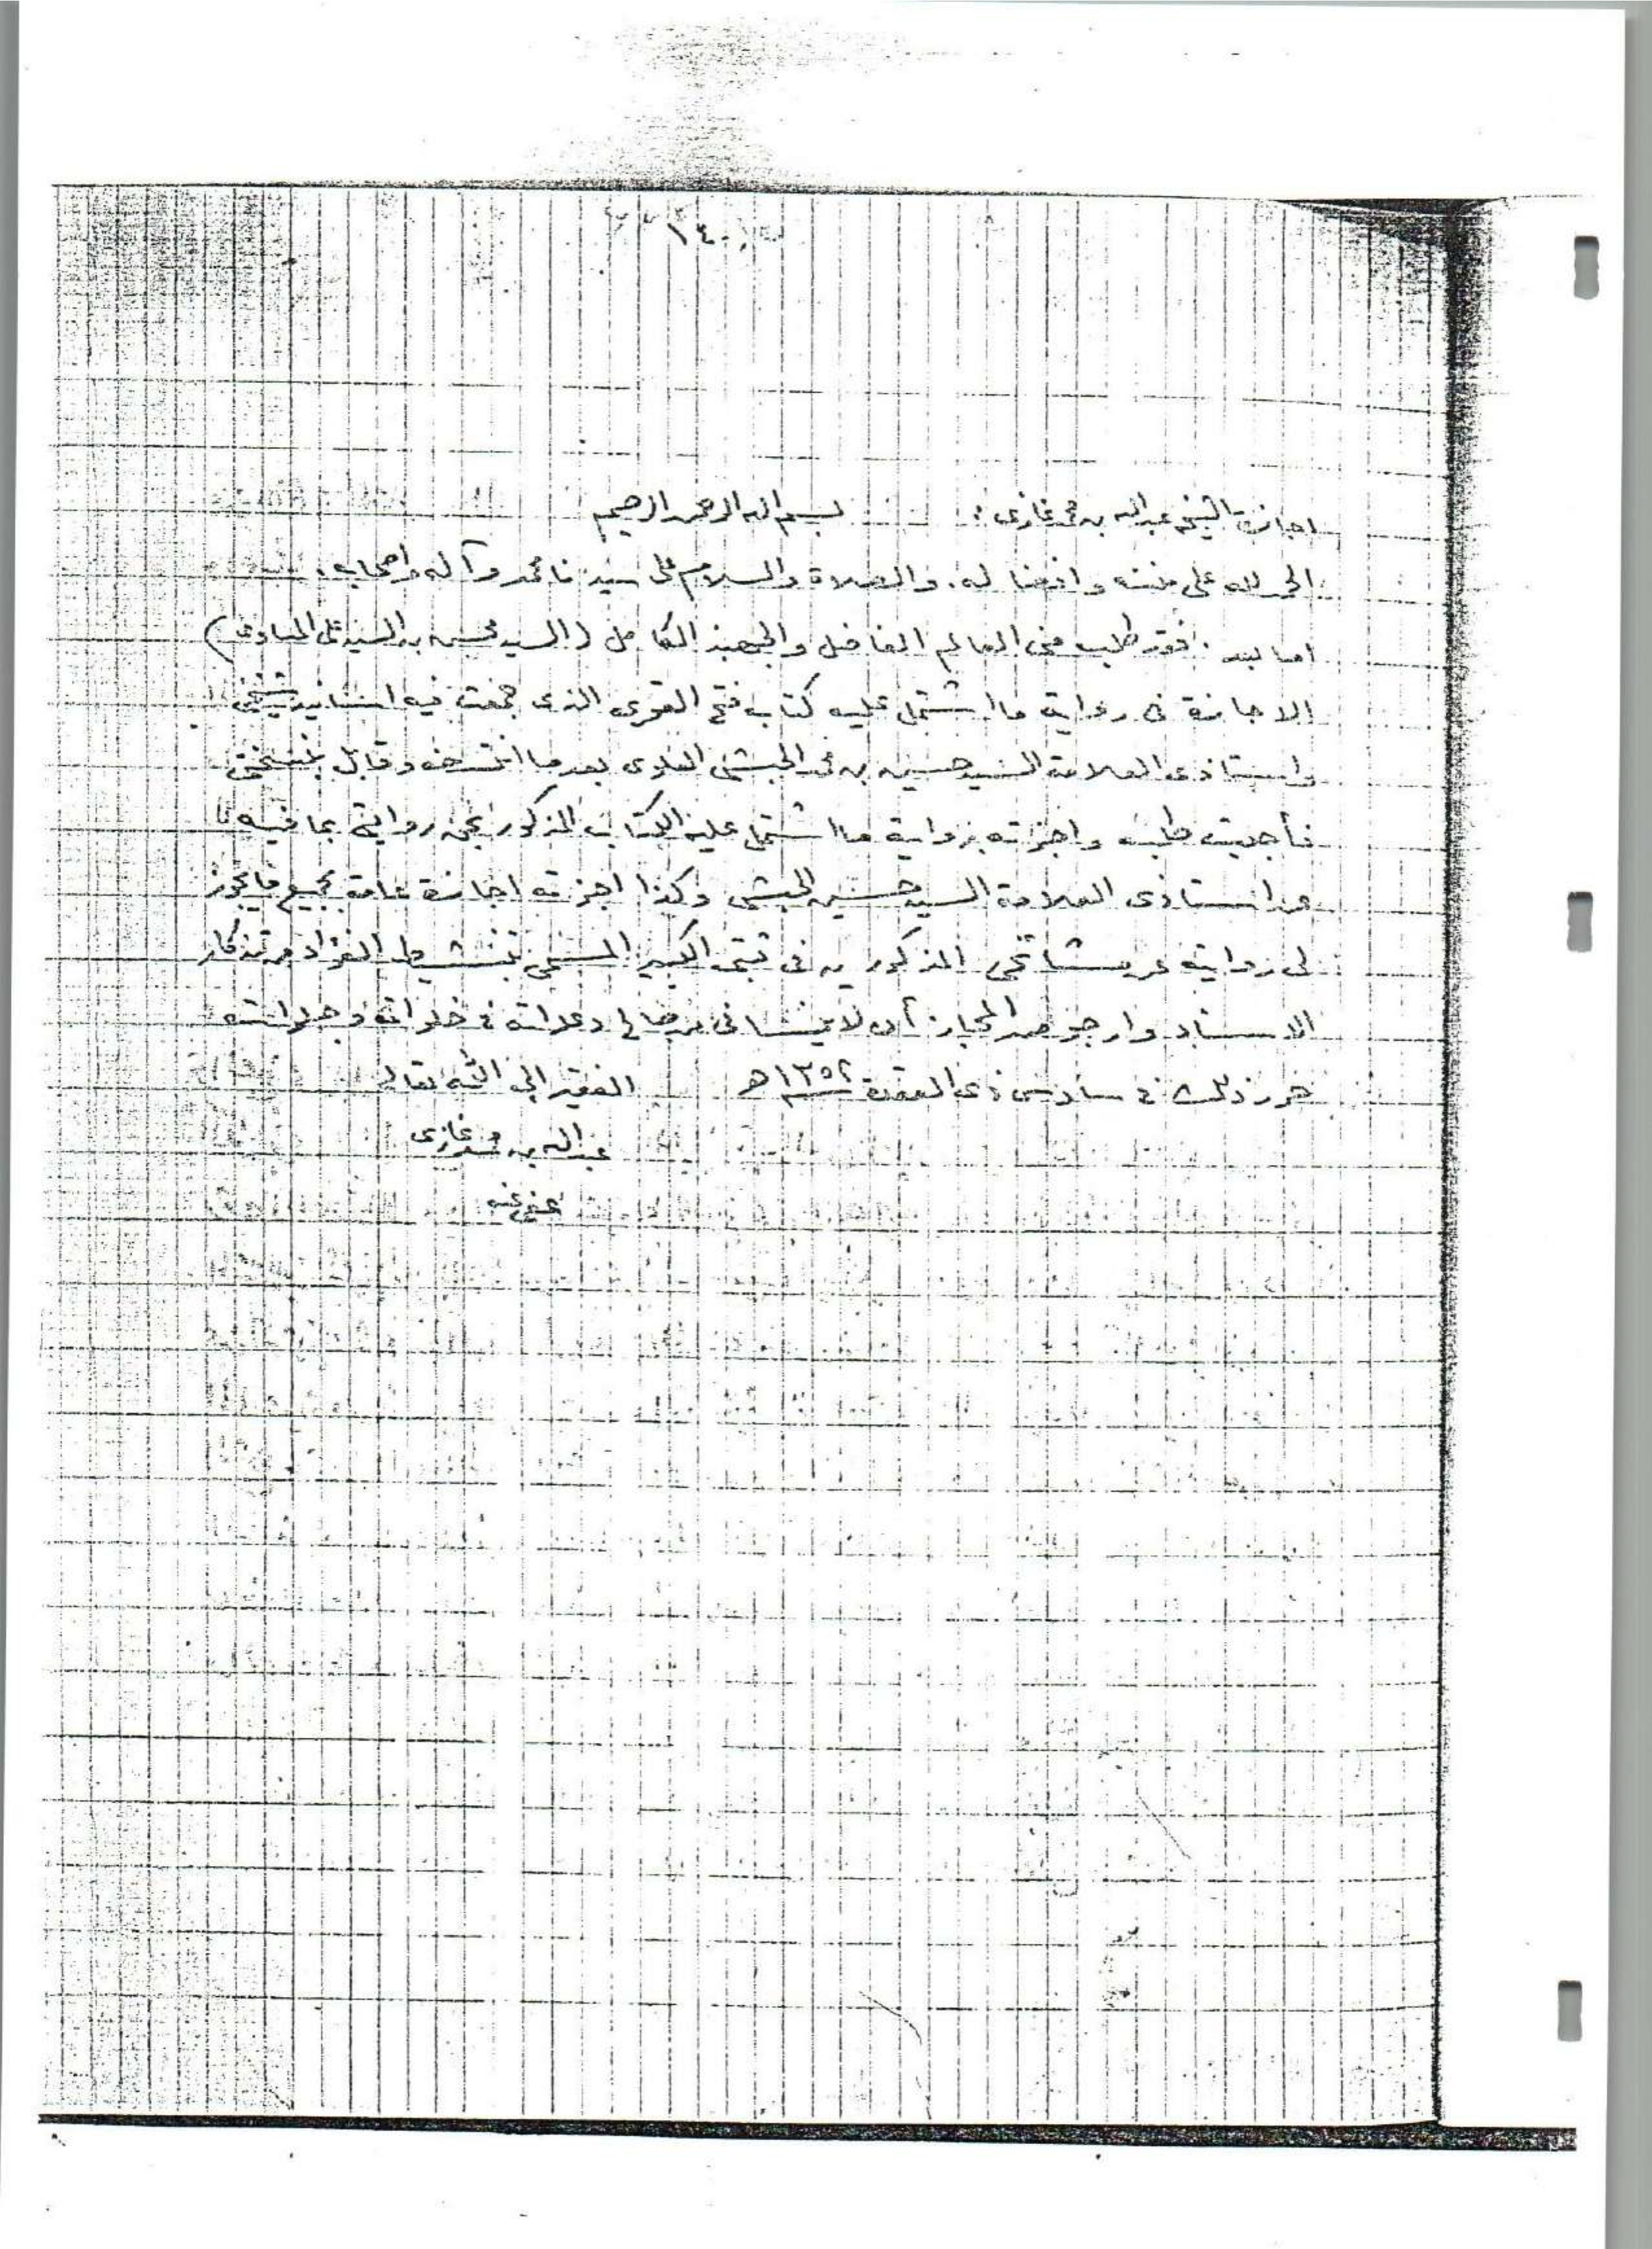 ١٤٠
اجازة الشيخ عبدالله بن محمد غازى : بسم الله الرحمن الرحيم
الحمد لله على مننه وافضاله . والصلاة والسلام على سيدنا محمد وآله واصحابه .
اما بعد . فقد طلب منى العالم الفاضل والجهبذ الكامل (السيد محسن بن السيد على المساوى)
الاجازة فى رواية ما اشتمل عليه كتاب فتح القوى الذى جمعت فيه اسانيد شيخى
واستاذى العلامة السيد حسين بن محمد الحبشى العلوى بعد ما انتسخه وقابل بنسختى
فأجبت طلبه واجزته برواية ما اشتمل عليه الكتاب المذكور بحق روايتى بما فيه
عن استاذى العلامة السيد حسين الحبشى وكذا اجزته اجازة عامة بجميع ما يجوز
لى روايته عن مشائخى المذكورين فى ثبتى الكبير المسمى بتنشيط الفؤاد من تذكار
الاسناد وارجو من المجاز أن لا ينسانى من صالح دعواته فى خلواته وجلواته
حرر ذلك فى سادس ذى القعدة ١٣٥٢ هـ الفقير الى الله تعالى
عبدالله بن محمد غازى
عفى عنه